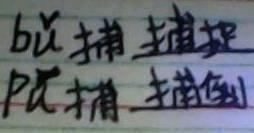 bǔ 捕 捕捉
pǔ 捕 捕倒